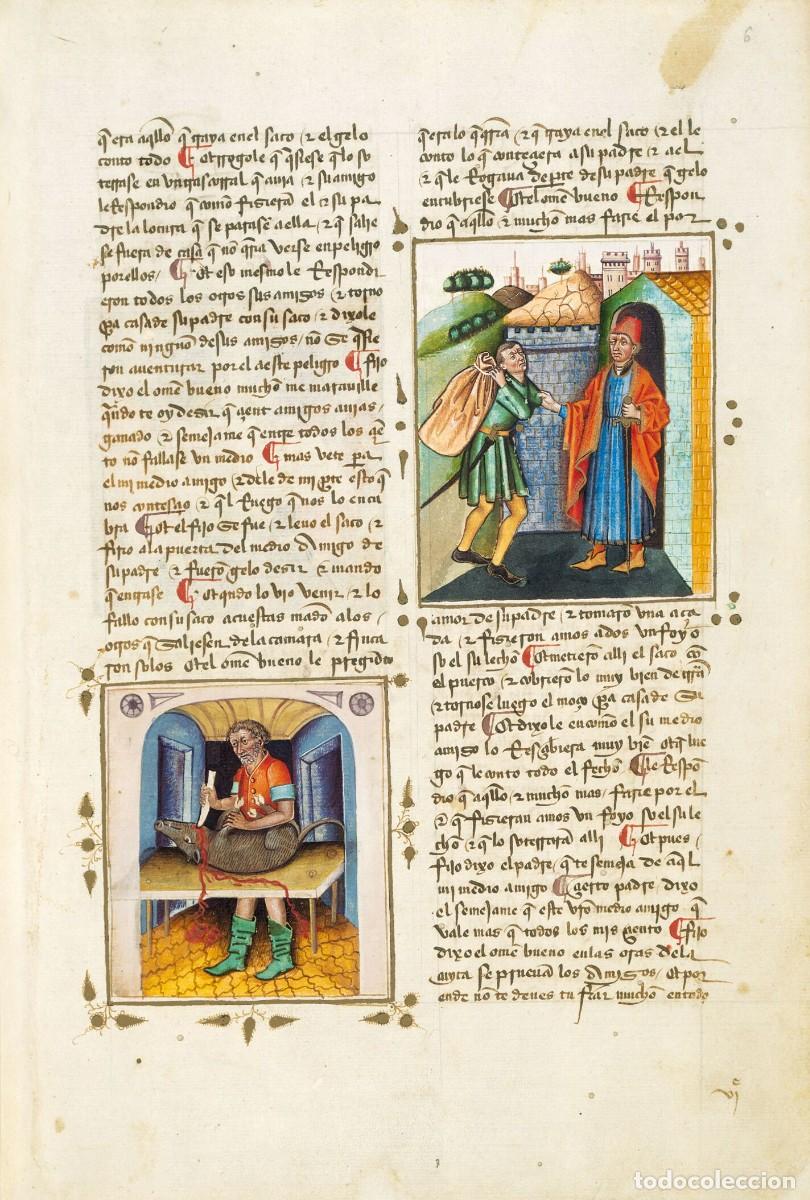 6
q̃ era aq̃llo q̃ yaya enel saco / ⁊ el gelo
conto todo ¶ Et rrogole q̃ q̃siese q̃ lo so
terrase en un gas corral q̃ auia / ⁊ su amigo
le Respondio q̃ como fizieran el ⁊ su pa
dre la locura q̃ se parasen a ella / ⁊ q̃ salie
se fuera de casa q̃ no q̃ria verse en peligro
por ellos / ¶ Et eso mesmo le Respondi
eron todos los otros sus amigos / ⁊ torno
p̃a casa de su padre con su saco / ⁊ dixole
como ninguno de sus amigos / no se q̃sie
ron auenturar por el a este peligro ¶ Fijo
dixo el ome bueno mucho me marauille
q̃ndo te oy desir q̃ çient amigos auias
ganado / ⁊ semejame q̃ entre todos los çie
to no fallase un medio ¶ mas vete p̃a
el mi medio amigo / ⁊ dile de mi p̃te esto q̃
nos contesçio / ⁊ q̃l Ruego q̃ nos lo encu
bra ¶ Et el fijo se fue / ⁊ leuo el saco / ⁊
firio a la puerta del medio Amigo de
su padre / ⁊ fuerõ gelo desir / ⁊ mando
q̃ entrase ¶ Et q̃ndo lo vio venir / ⁊ lo
fallo con su saco a cuestas mãdo a los
otros q̃ saliesen de la camara / ⁊ finca
ron solos / Et el ome bueno le pregũto
q̃ era lo q̃ q̃ria / ⁊ q̃ yaya enel saco / ⁊ el le
conto lo q̃ conteçiera a su padre ⁊ a el
⁊ q̃ le Rogaua de p̃te de su padre q̃ gelo
encubriese ¶ Et el ome bueno ¶ Respon
dio q̃ aq̃llo ⁊ mucho mas farie el por
amor de su padre / ⁊ tomarõ una aça
da / ⁊ fizieron amos ados un foyo
so el su lecho ¶ Et metierõ alli el saco cõ
el puerco / ⁊ cobrierõ lo muy bien de tr̃ra
⁊ tornose luego el moço p̃a casa de su
padre ¶ Et dixo le en como el su medio
amigo lo Resçibiera muy biẽ / Et q̃ lue
go q̃ le conto todo el fecho ¶ le Respõ
dio q̃ aq̃llo / ⁊ mucho mas / farie por el
⁊ q̃ fizieran amos un foyo so el su le
cho / ⁊ q̃ lo soterrarã alli ¶ Et pues
fijo dixo el padre / q̃ te semeja de aq̃l
mi medio amigo ¶ çierto padre / dixo
el semejame q̃ este vr̃o medio amigo q̃
vale mas q̃ todos los mis çiento ¶ fijo
dixo el ome bueno en las oras de la
cuyta se prueuã los Amigos / Et por
ende no te deues tu fiar mucho en todo
vj
todocoleccion